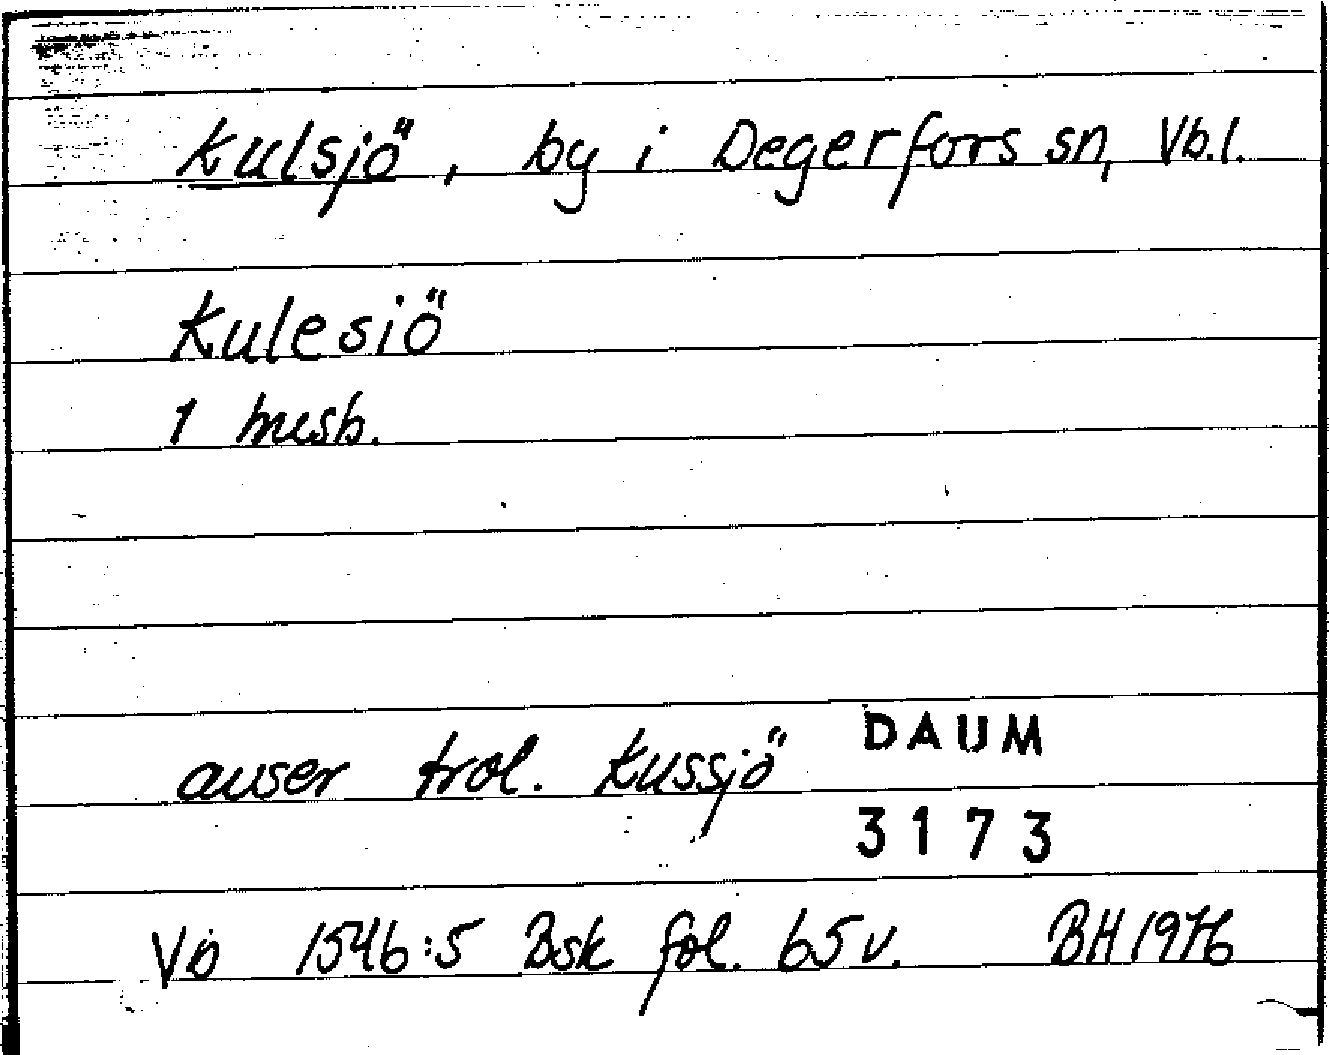 Kulsjö, by i Degerfors sn, Vb.l.
Kulesiö
1 husb.
auser trol. Kussjö
DAUM
3173
Vb 1546:5 Bsk fol. 65 v. BH 1976